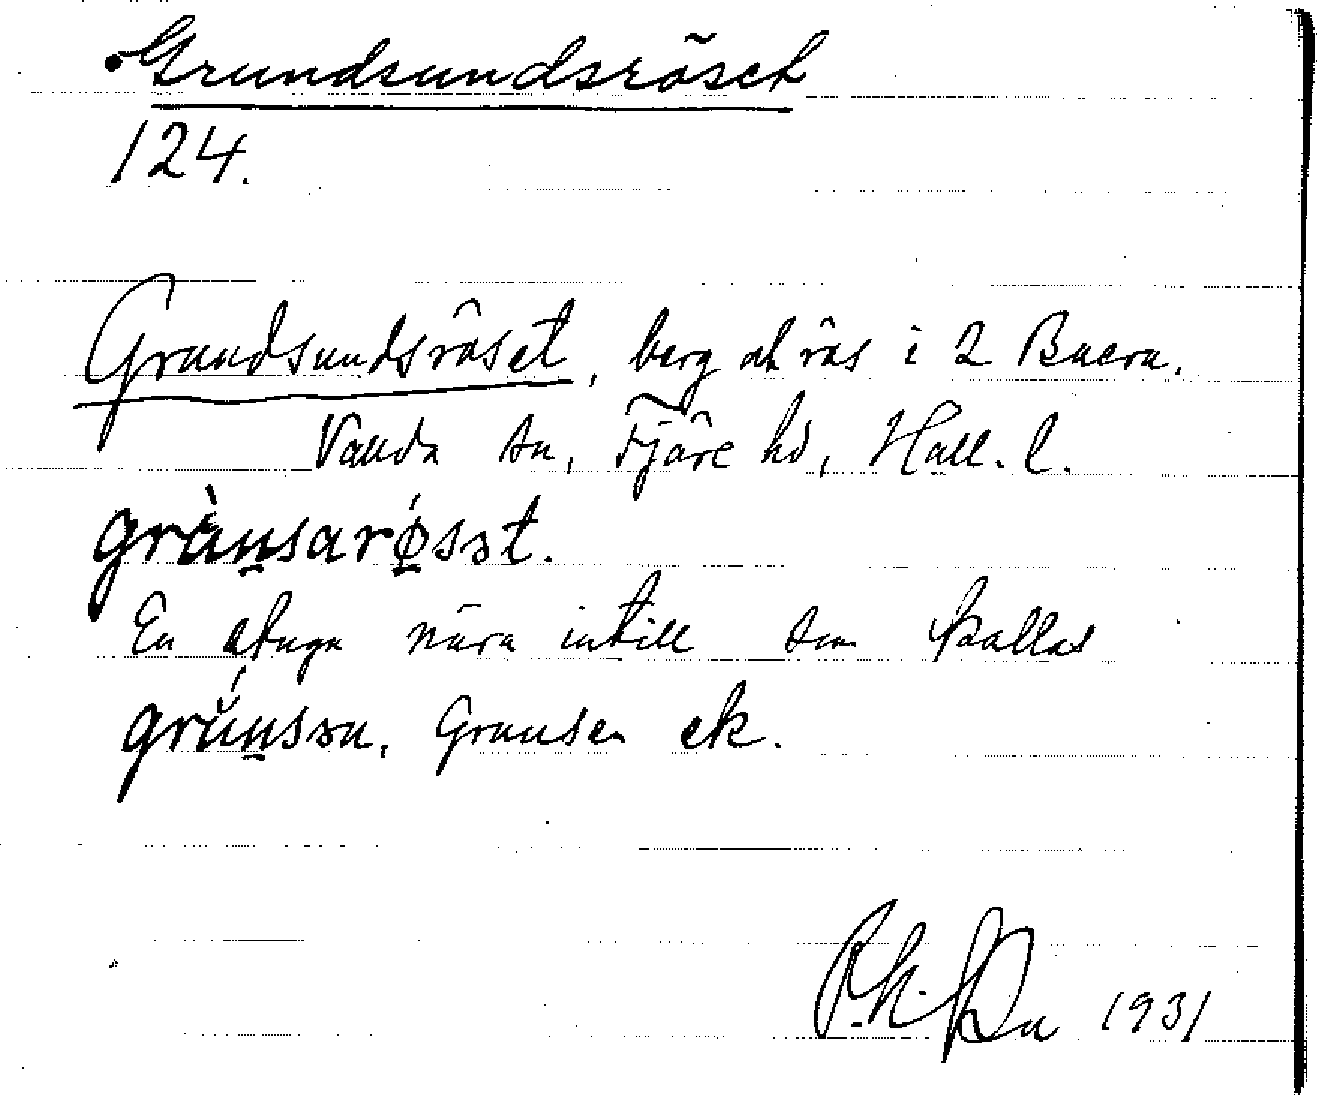 Grundsundsröset
124.
Grundsundsröset, berg ok rös i 2 Buera.
Vallda sn, Fjäre hd, Hall. l.
grùn̠sarǿ̠sət.
En stuga nära intill som kallas
grún̠sən, Grunsen ek.
1931